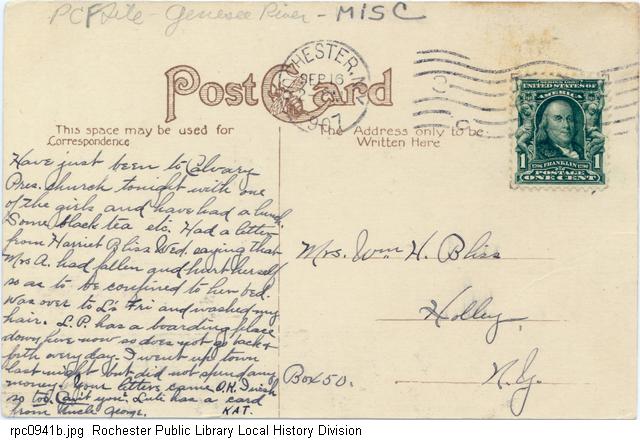 PCF Site - Genesee River - MISC
Post Card
ROCHESTER, N.Y.
SEP 16
1907
SERIES 1902
UNITED STATES OF
AMERICA
FRANKLIN
1 1
POSTAGE
ONE CENT
This space may be used for
Correspondence
The Address only to be
Written Here
Have just been to Calvary
Pres. church tonight with one
of the girls and have had a lunch.
Some black tea etc. Had a letter
from Harriet Bliss Wed. saying that
Mrs A. had fallen and hurt herself
so as to be confined to her bed.
Was over to L's Fri and washed my
hair. L.P. has a boarding place
down five now so does not go back &
forth every day. I went up town
last night but did not spend any
money. Your letters came O.K. I wish
so too. Can't you? has a card
from Uncle George. KAT.
Mrs. Wm H. Bliss
Holley,
Box 50. N.Y.
rpc0941b.jpg Rochester Public Library Local History Division